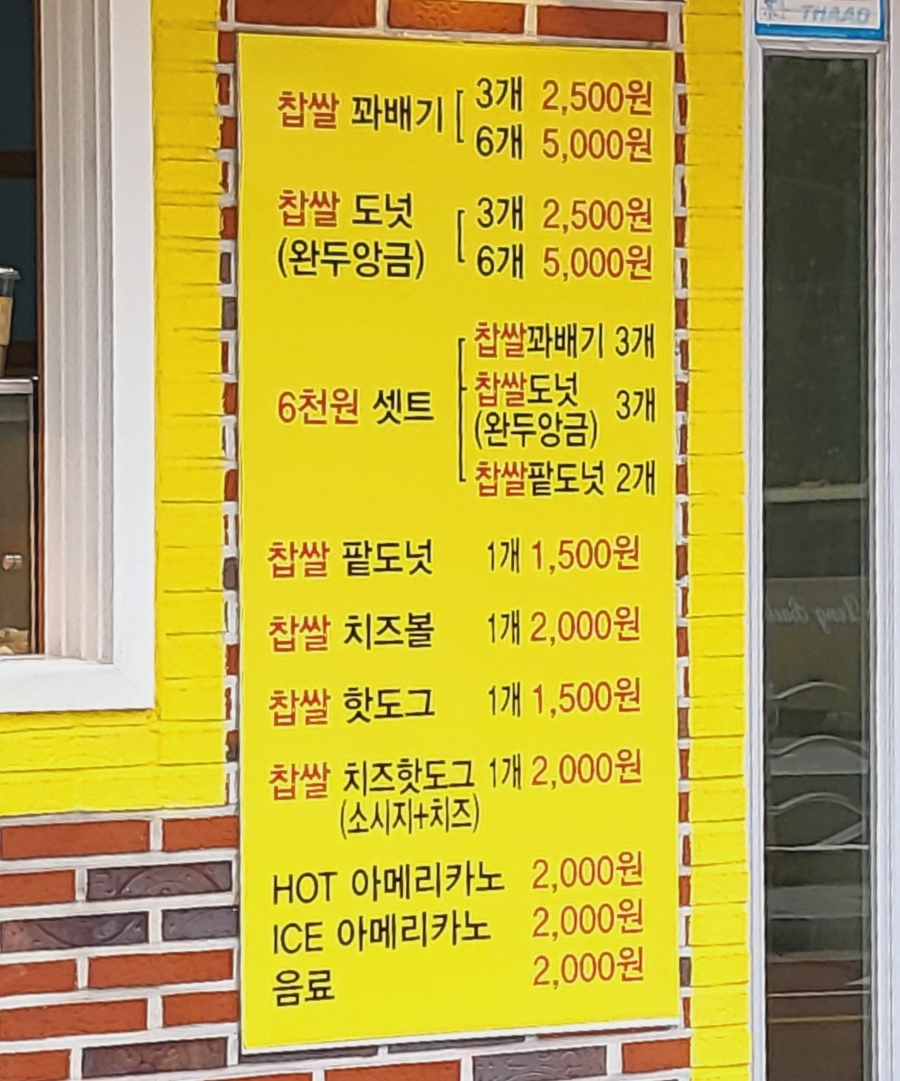 THAAD
찹쌀 꽈배기 3개 2,500원
6개 5,000원
찹쌀 도넛 3개 2,500원
(완두앙금) 6개 5,000원
찹쌀꽈배기 3개
6천원 셋트 찹쌀도넛 3개
(완두앙금)
찹쌀팥도넛 2개
찹쌀 팥도넛 1개 1,500원
찹쌀 치즈볼 1개 2,000원
찹쌀 핫도그 1개 1,500원
찹쌀 치즈핫도그 1개 2,000원
(소시지+치즈)
HOT 아메리카노 2,000원
ICE 아메리카노 2,000원
음료 2,000원